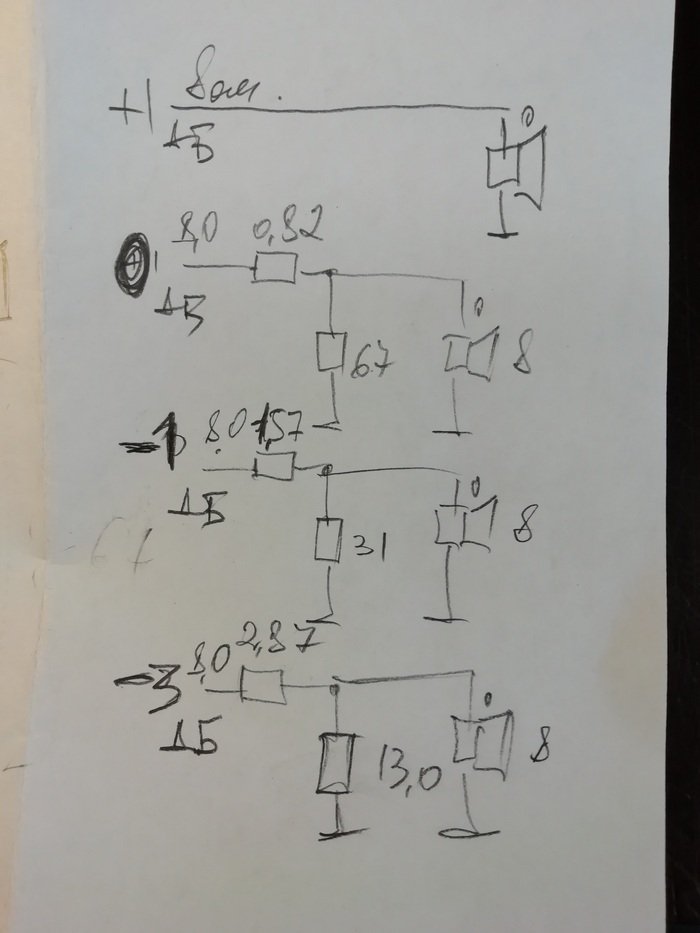 +1 8ом.
дБ
0 8,0 0,82
дБ
67 8
-1 8,0 1,57
дБ
31 8
-3 8,0 2,87
дБ
13,0 8